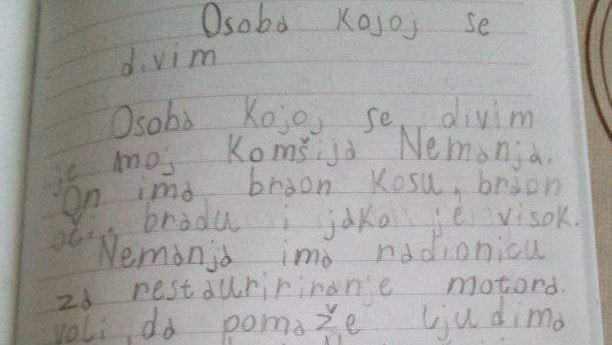 Osoba kojoj se
divim
Osoba kojoj se divim
je moj komšija Nemanja.
On ima braon kosu, braon
oči, bradu i jako je visok.
Nemanja ima radionicu
za restauririranje motora.
voli da pomaže ljudima